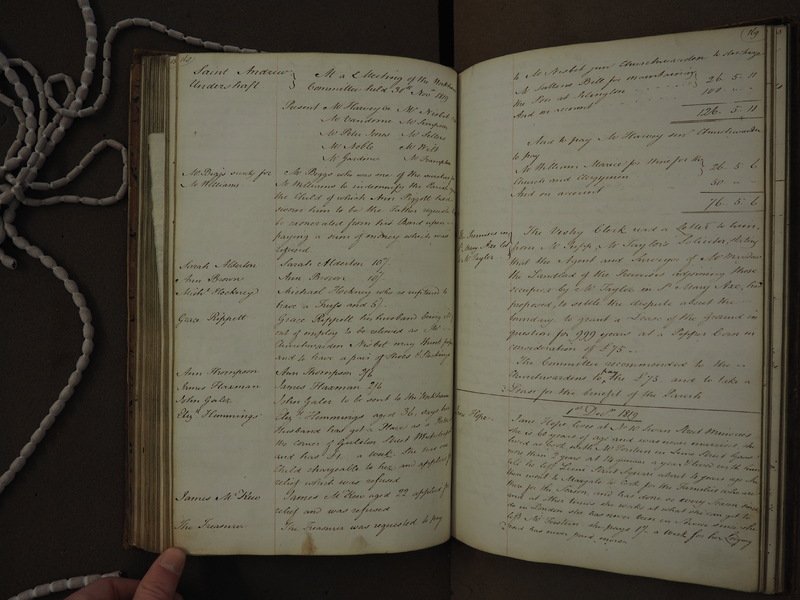 Saint Andrew Undershaft
At a Meeting of the Workhouse
Committee held 30th Novr 1819
Present Mr Harvey jun Mr Nisbet
Mr Vandome Mr Simpson
Mr Peter Jones Mr Sellers
Mr Noble Mr Webb
Mr Gardner Mr Frampton
Mr Biggs surety for Mr Williams
Mr Biggs who was one of the sureties for
Mr Williams to indemnify the Parish
the Child of which Ann Piggott had
sworn him to be the Father
to be exonerated from his Bond upon
paying a sum of money which was
refused
Sarah Alderton Sarah Alderton 10/.
Ann Brown Ann Brown 10/.
Michl Hockney Michael Hockney who is ruptured to
have a Truss and 5/.
Grace Rippett Grace Rippett her husband being
out of employ to be relieved as Mr
Churchwarden Nisbet may think
and to have a pair of Shoes & Stockings
Ann Thompson Ann Thompson 2/6
James Harman James Harman 2/6
John Gater John Gater to be sent to the Workhouse
Elizth Hemmings Elizth Hemmings aged 36. says her
Husband has got a Place as a
the corner of Goulston Street Whitechapel
and has £1. a week. She had one
Child chargeable to her and applied for
relief which was refused
James McKew James McKew aged 22 applied for
relief and was refused
The Treasurer The Treasurer was requested to pay
169
to Mr Nisbet jun Churchwarden to discharge
Mr Sellers Bill for maintaining
the Poor at Islington 26. 5. 11
And on account 100 - -
126. 5. 11
And to pay Mr Harvey senr Churchwarden
to pay
Mr William Morice for Wine for the
Church and Clergymen 26. 5. 6
And on account 50 - -
76. 5. 6
The Vestry Clerk read a Letter to him
from Mr Taylor's Solicitor, stating
that the Agent and Surveyor of
the Landlord of the Premises adjoining those
occupied by Mr Taylor in St Mary Axe, had
proposed to settle the dispute about the
boundary to grant a Lease of the ground in
question for 999 years at a Pepper Corn in
consideration of £75 -
The Committee recommended to the
Churchwardens to pay the £75 and to take a
Lease for the benefit of the Parish
1st Decr 1819
Jane Hope Jane Hope lives at No 10 Swan Street Minories
she is 60 years of age and was never married she
lived as Cook with Mr in Lime Street Square
more than 2 years at 14 guineas a year & lived with him
till he left Lime Street Square about 14 years ago. She
then went to Margate to Cook for the Families who were
there for the Season and has done so every Season since
and at other times she works at what she can get to
do in London she has never been in Service since she
left Mr she pays a week for her Lodging
and has never paid more